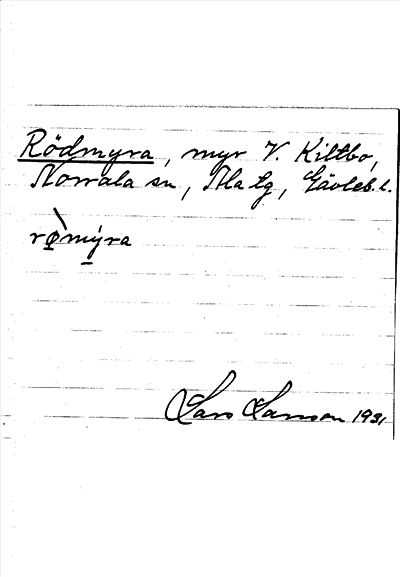 Rödmyra, myr V. Kiltbo,
Norrala sn, Ala tg, Gävleb. l.
rø̀mýra
Lars Larsson 1931